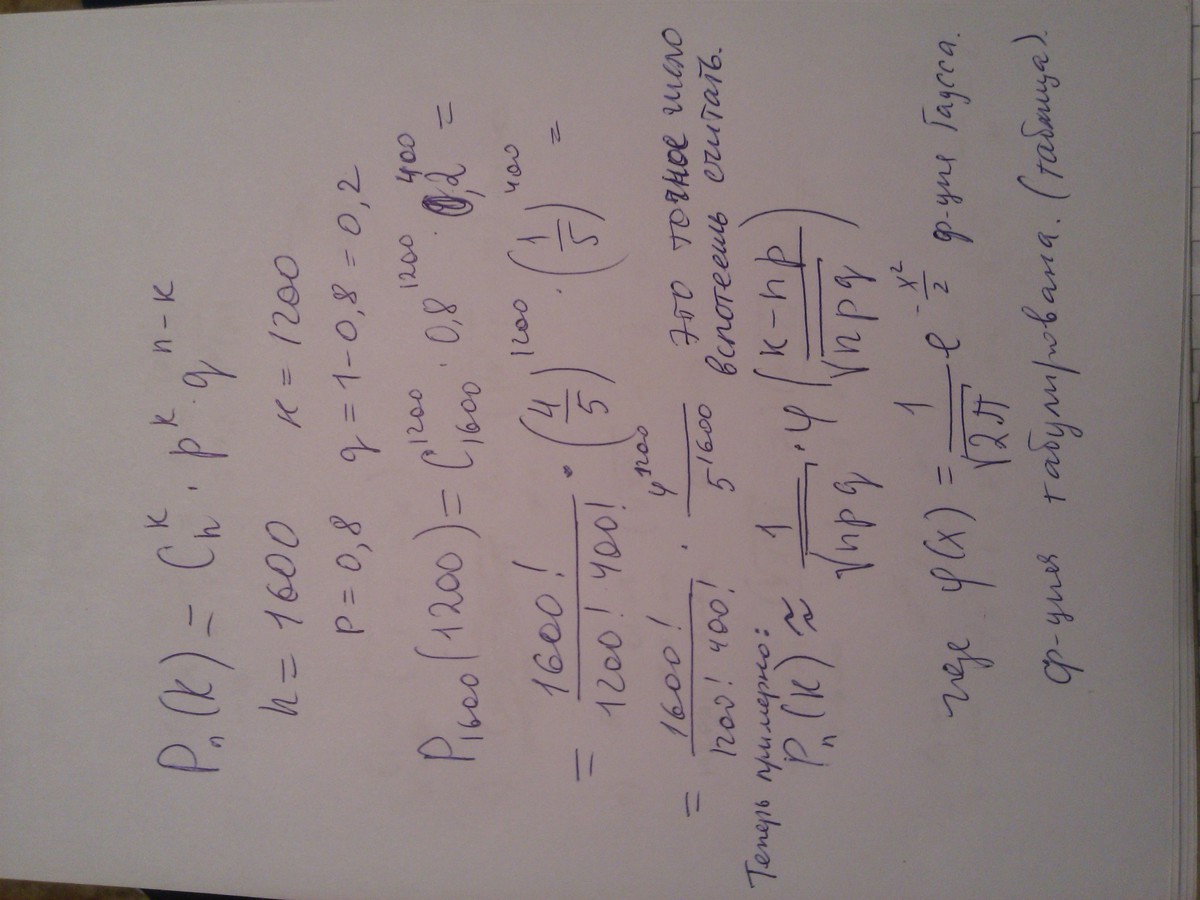 Pₙ(k) = Cₙᵏ · pᵏ · qⁿ⁻ᵏ
n = 1600 k = 1200
p = 0,8 q = 1 - 0,8 = 0,2
P₁₆₀₀(1200) = C₁₆₀₀¹²⁰⁰ · 0,8¹²⁰⁰ · 0,2⁴⁰⁰ =
= 1600! / 1200! 400! · (4/5)¹²⁰⁰ · (1/5)⁴⁰⁰ =
= 1600! / 1200! 400! · 4¹²⁰⁰ / 5¹⁶⁰⁰ это точное число
вспотеешь считать.
Теперь примерно:
Pₙ(k) ≈ 1/√npq · φ(k-np / √npq)
где φ(x) = 1/√2π e^(-x²/2) ф-ция Гаусса.
ф-ция табулирована. (таблица).